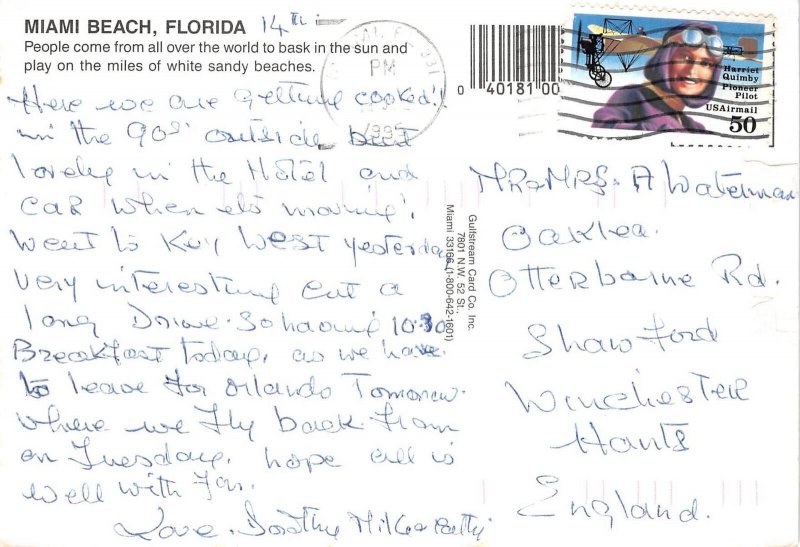 MIAMI BEACH, FLORIDA 14TH
People come from all over the world to bask in the sun and
play on the miles of white sandy beaches.
Here we are getting cooked!
in the 90s' outside but
lovely in the Hotel and
car when its moving.
Went to Key West yesterday
very interesting but a
long Drive. So having 10.30
Breakfast today, as we have
to leave for Orlando Tomorrow.
where we fly back from
on Tuesday, hope all is
well with you.
Love. Dorothy Mike
PM
1995
0 40181 00
Harriet
Quimby
Pioneer
Pilot
USAirmail
50
Gulfstream Card Co. Inc.
7801 N.W. 52 St.,
Miami 33166 (1-800-642-1601)
MR & MRS. A Waterman
Oaklea.
Otterborne Rd.
Shawford
Winchester
Hants
England.